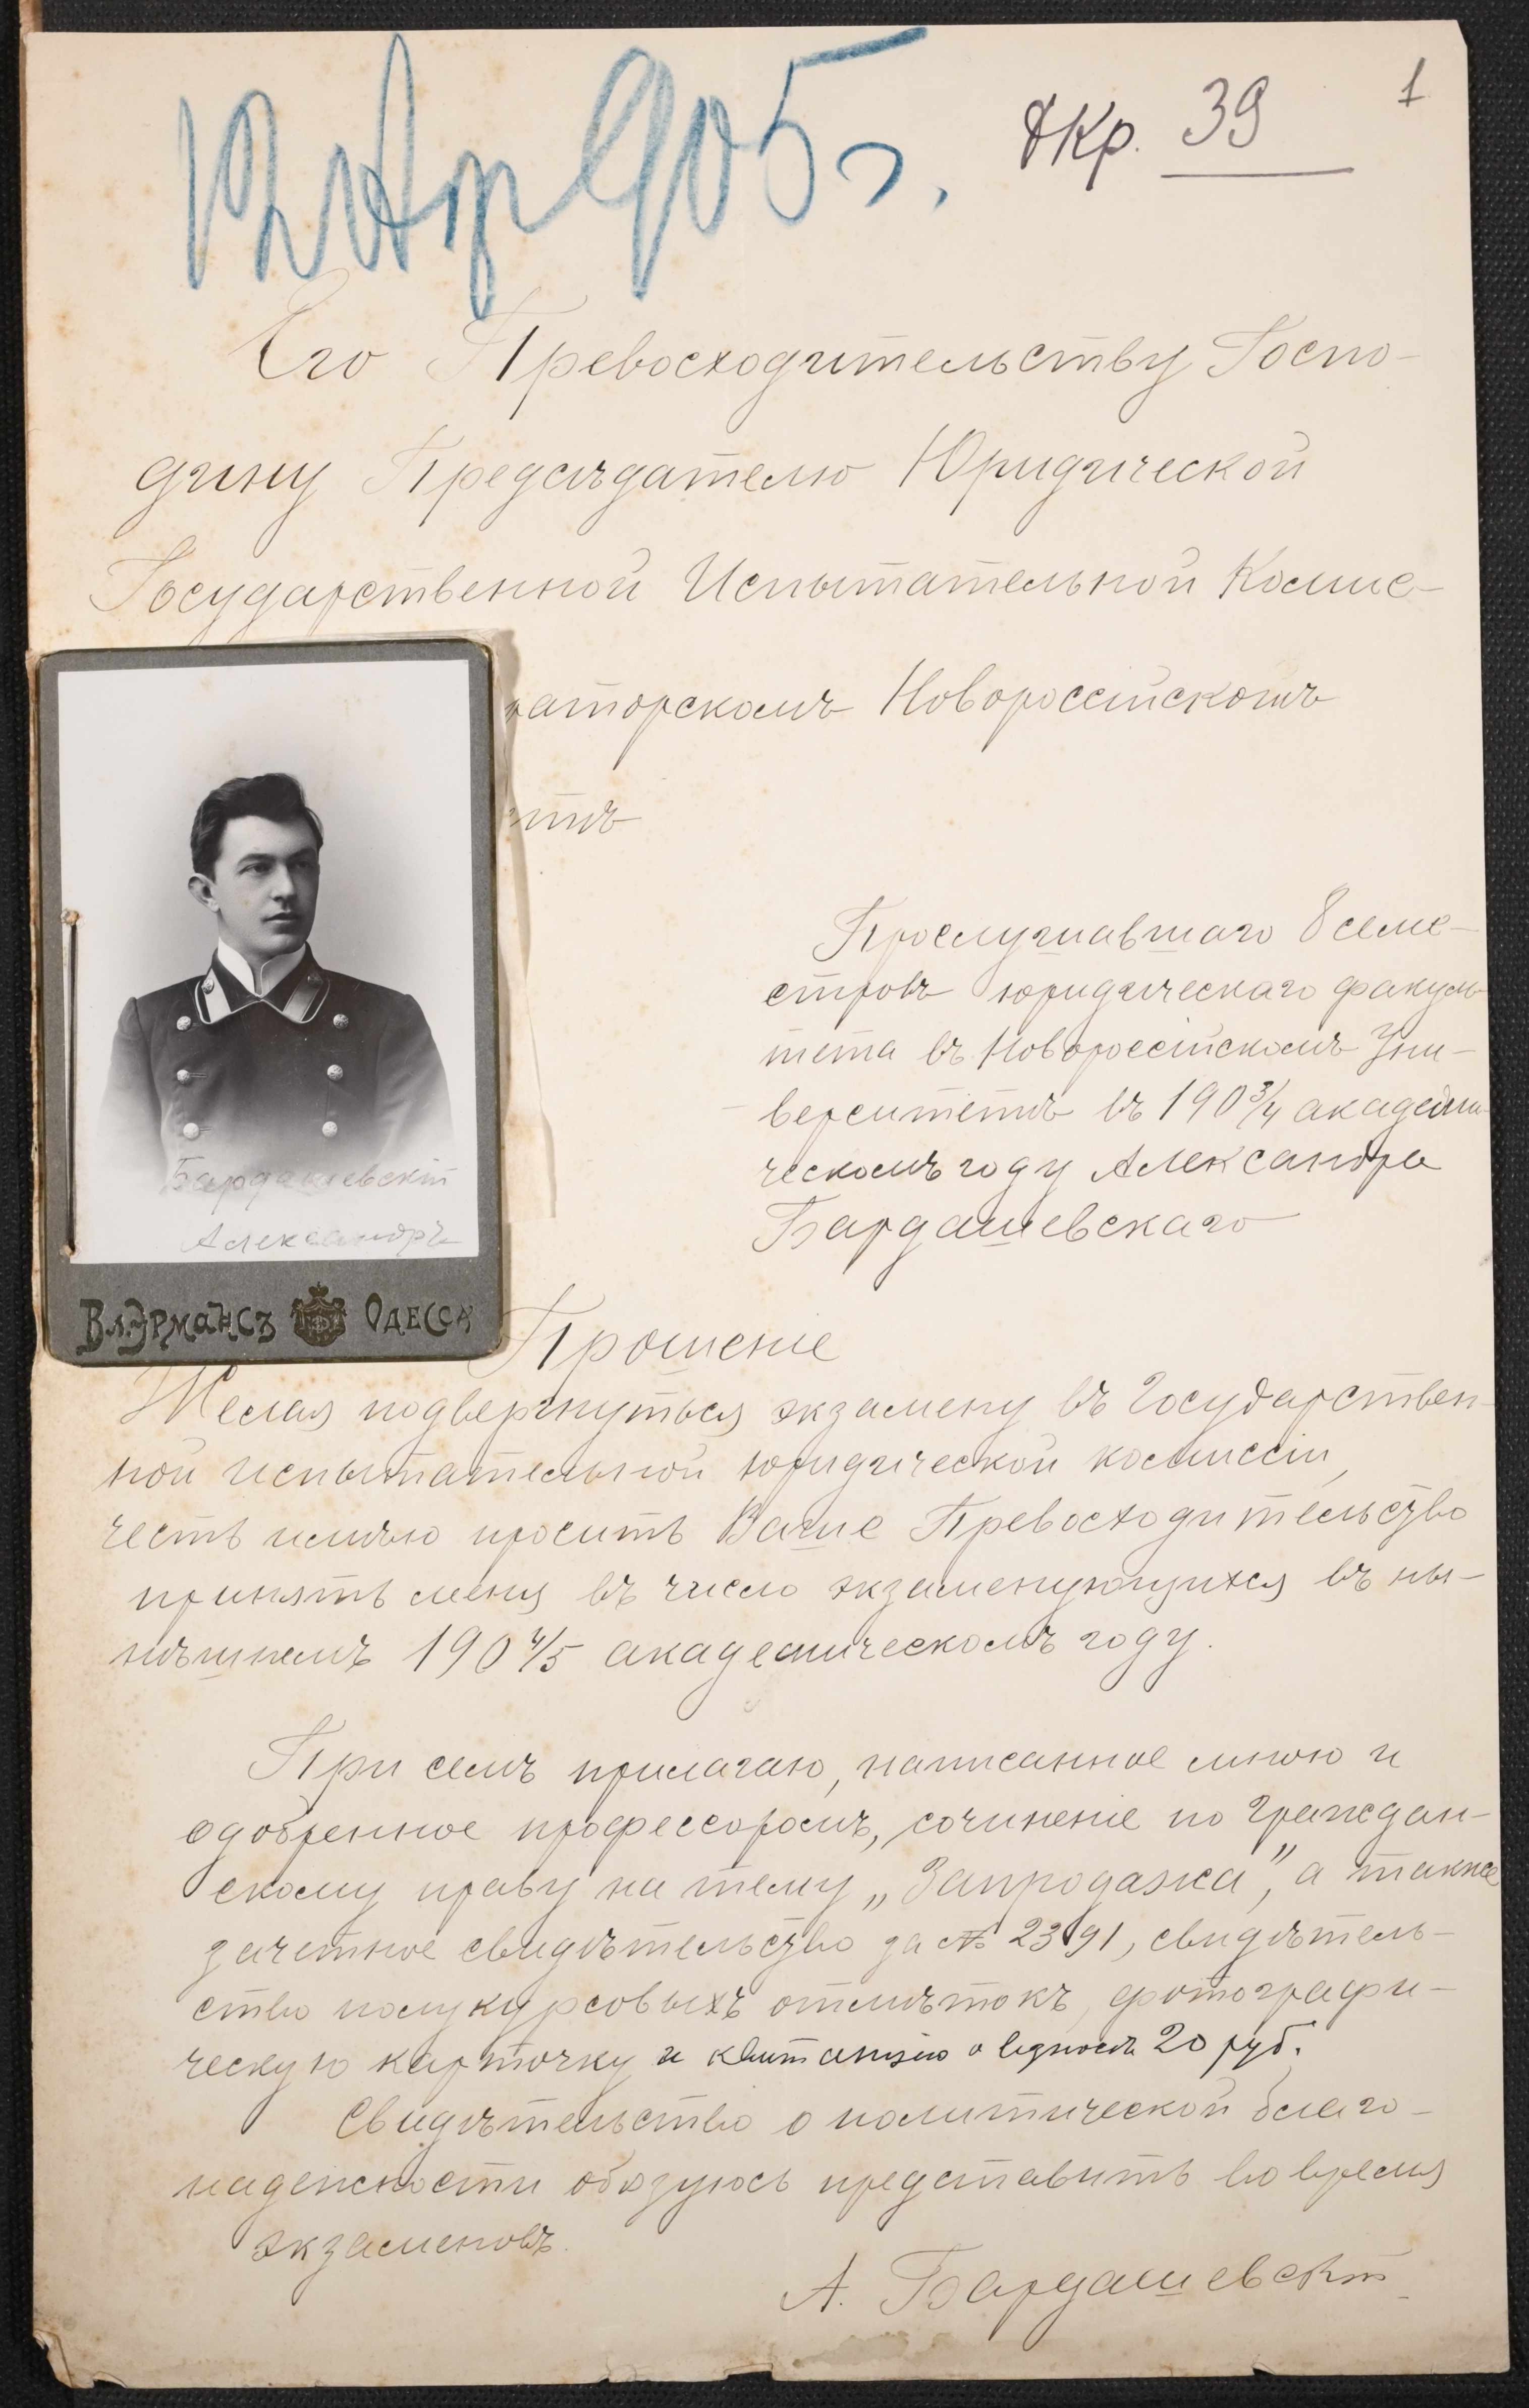 12 Апр 905 г.
Экр. 39
1
Его Превосходительству Госпо-
дину Председателю Юридической
Государственной Испытательной Комис-
раторскомъ Новороссійскомъ
тѣ
Прослушавшаго 8 семе-
стровъ юридическаго факуль-
тета въ Новороссійскомъ Уни-
верситетѣ въ 190 3/4 академи-
ческомъ году Александра
Бардашевскаго
Бардашевскій
Александръ
Вл. Эрмансъ Одесса
Прошеніе
Желая подвергнуться экзамену въ Государствен-
ной испытательной юридической комиссіи,
честь имѣю просить Ваше Превосходительство
принять меня въ число экзаменующихся въ ны-
нѣшнемъ 190 4/5 академическомъ году.
При семъ прилагаю, написанное мною и
одобренное профессоромъ, сочиненіе по Граждан-
скому праву на тему „Запродажа", а также
зачетное свидѣтельство за № 2391, свидѣтель-
ство полукурсовыхъ отмѣтокъ, фотографи-
ческую карточку и квитанцію о взносѣ 20 руб.
Свидѣтельство о политической благо-
надежности обязуюсь представить во время
экзаменовъ.
А. Бардашевскій